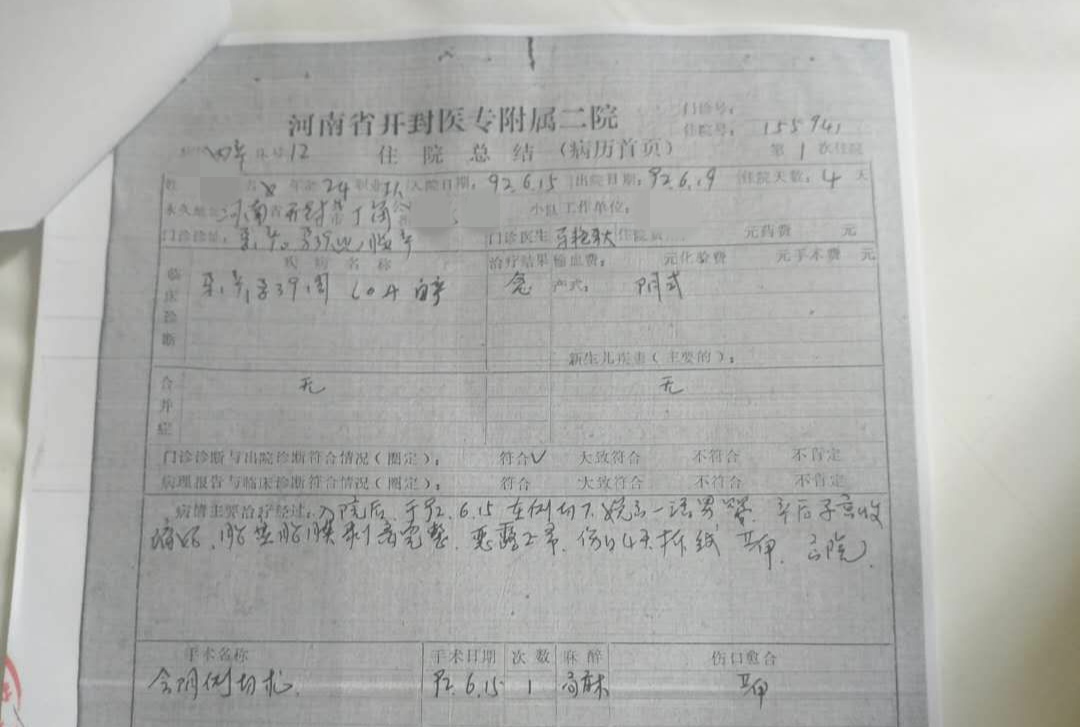 门诊号：
河南省开封医专附属二院
住院号：155941
床号12 住院总结（病历首页） 第1次住院
姓 名 女 年龄24 职业 入院日期：92.6.15 出院日期：92.6.19 住院天数：4天
永久地址 河南省开封 小队工作单位：
门诊诊断： 孕39 临产 门诊医生 住院费 元药费 元
疾病名称 治疗结果 输血费： 元化验费 元手术费 元
临床诊断 孕39周 LOA 产式： 阴式
新生儿疾患（主要的）：
合并症 无 无
门诊诊断与出院诊断符合情况（圈定）： 符合√ 大致符合 不符合 不肯定
病理报告与临床诊断符合情况（圈定）： 符合 大致符合 不符合 不肯定
病情主要治疗经过：入院后，于92.6.15在侧切下娩出一活男婴，产后子宫收
缩好，胎盘胎膜剥离完整，恶露正常，伤口4天拆线，出院。
手术名称 手术日期 次数 麻醉 伤口愈合
会阴侧切术 92.6.15 1 局麻